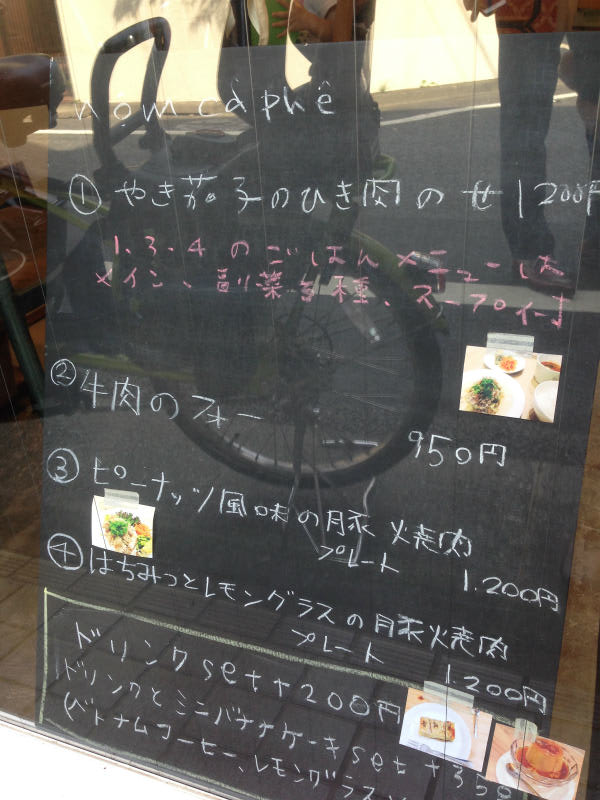 nom caphê
① やき茄子のひき肉のせ 1200円
1.3.4のごはんメニューは
メイン、副菜3種、スープ付
② 牛肉のフォー
950円
③ ピーナッツ風味の豚焼肉
プレート
1.200円
④ はちみつとレモングラスの豚焼肉
プレート
1.200円
ドリンクset+200円
ドリンクとミニバナナケーキset+350
(ベトナムコーヒー、レモングラス、